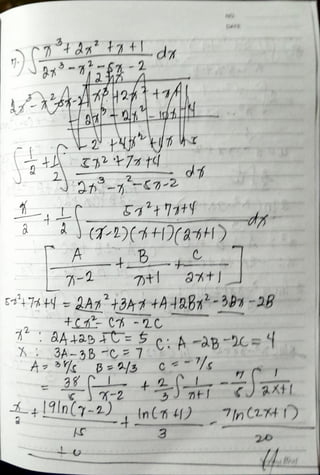 NO.
DATE
7.) ∫ x³ + 2x² + x + 1 / 2x³ - x² - 5x - 2 dx
∫ 1/2 + 1/2 ∫ 5x² + 7x + 4 / 2x³ - x² - 5x - 2 dx
x/2 + 1/2 ∫ 5x² + 7x + 4 / (x-2)(x+1)(2x+1) dx
[ A / x-2 + B / x+1 + C / 2x+1 ]
5x² + 7x + 4 = 2Ax² + 3Ax + A + 2Bx² - 3Bx - 2B
+ Cx² - Cx - 2C
x² : 2A + 2B + C = 5 C: A - 2B - 2C = 4
x : 3A - 3B - C = 7
A = 38/15 B = 2/3 C = -7/5
= 38/15 ∫ 1/x-2 + 2/3 ∫ 1/x+1 - 7/5 ∫ 1/2x+1
x/2 + 19ln(x-2)/15 + ln(x+1)/3 - 7ln(2x+1)/20
+ C